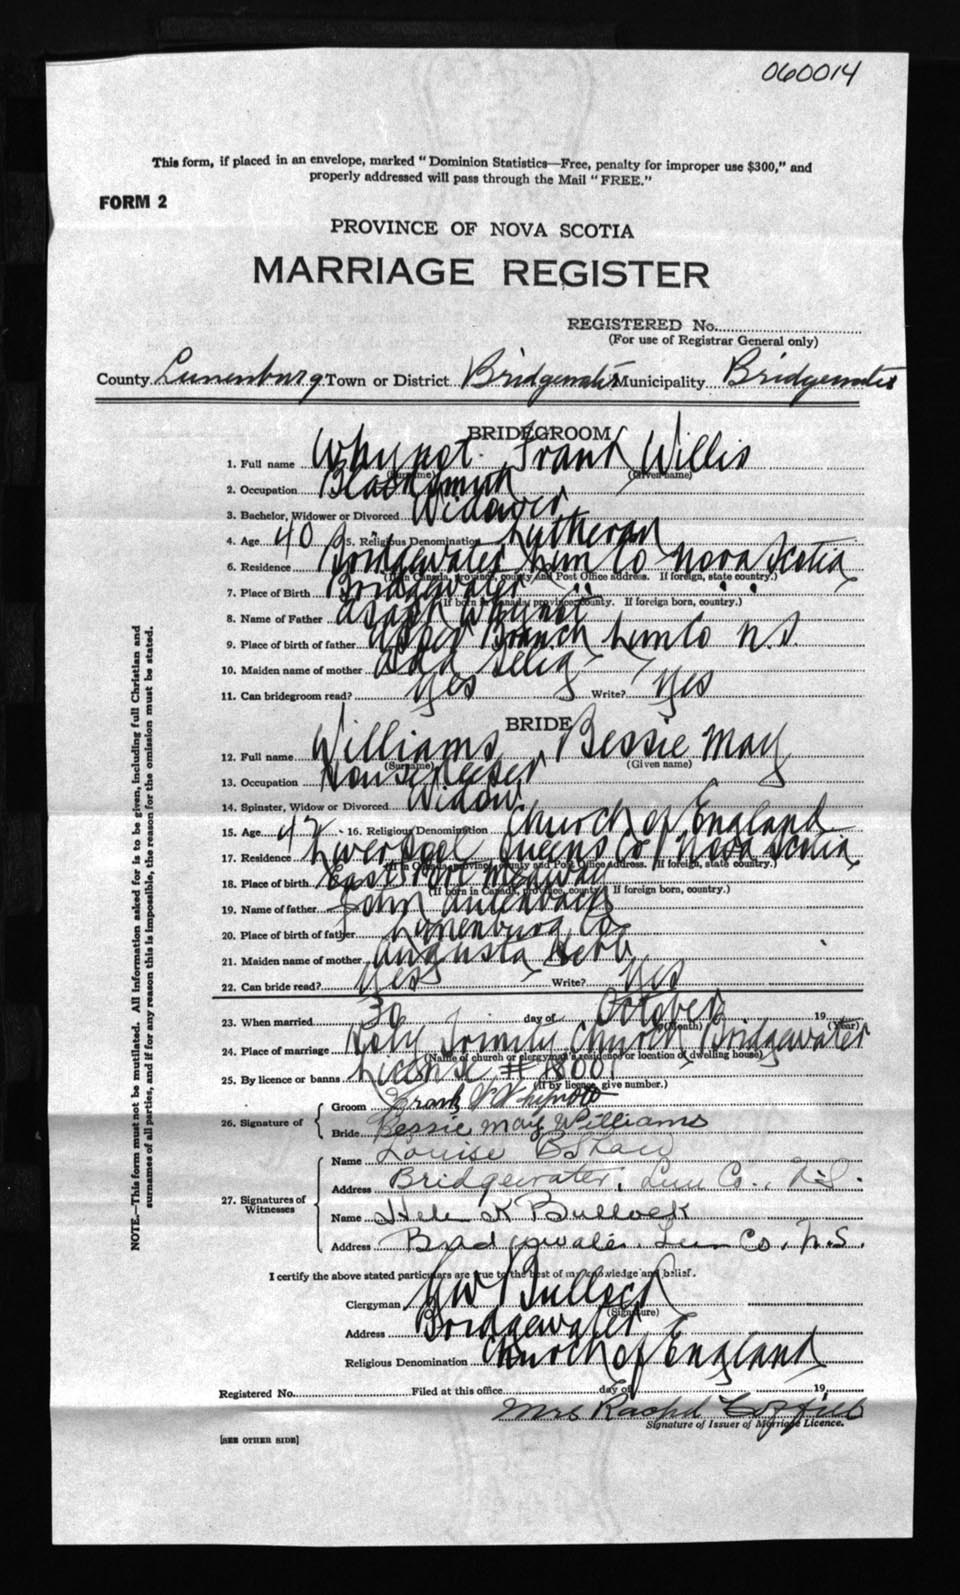 060014
This form, if placed in an envelope, marked "Dominion Statistics—Free, penalty for improper use $300," and
properly addressed will pass through the Mail "FREE."
FORM 2
PROVINCE OF NOVA SCOTIA
MARRIAGE REGISTER
REGISTERED No.
(For use of Registrar General only)
County Lunenburg Town or District Bridgewater Municipality Bridgewater
BRIDEGROOM
1. Full name Whynot. Frank Willis
(Surname) (Given name)
2. Occupation Blacksmith
3. Bachelor, Widower or Divorced Widower
4. Age 40 5. Religious Denomination Lutheran
6. Residence Bridgewater Lun Co Nova Scotia
(If in Canada, province, county and Post Office address. If foreign, state country.)
7. Place of Birth Bridgewater " "
(If born in Canada, province, county. If foreign born, country.)
8. Name of Father Whynot
9. Place of birth of father Upper Branch Lun Co N.S.
10. Maiden name of mother Ida Selig
11. Can bridegroom read? Yes Write? Yes
BRIDE
12. Full name Williams, Bessie May
(Surname) (Given name)
13. Occupation Housekeeper
14. Spinster, Widow or Divorced Widow
15. Age 42 16. Religious Denomination Church of England
17. Residence Liverpool Queens Co Nova Scotia
(If in Canada, province, county and Post Office address. If foreign, state country.)
18. Place of birth East Port Medway
(If born in Canada, province, county. If foreign born, country.)
19. Name of father John
20. Place of birth of father Lunenburg Co
21. Maiden name of mother Augusta
22. Can bride read? Yes Write? Yes
23. When married 30 day of October 19
(Month) (Year)
24. Place of marriage Holy Trinity Church Bridgewater
(Name of church or clergyman's residence or location of dwelling house)
25. By licence or banns License #
(If by licence, give number.)
26. Signature of
Groom Frank W Whynot
Bride Bessie May Williams
27. Signatures of Witnesses
Name Louise
Address Bridgewater, Lun Co., N.S.
Name Helen K Bullock
Address Bridgewater, Lun Co., N.S.
I certify the above stated particulars are true to the best of my knowledge and belief.
Clergyman Bullock
(Signature)
Address Bridgewater
Religious Denomination Church of England
Registered No. Filed at this office day of 19
Mrs Ralph
Signature of Issuer of Marriage Licence.
[SEE OTHER SIDE]
NOTE.—This form must not be mutilated. All information asked for is to be given, including full Christian and
surnames of all parties, and if for any reason this is impossible, the reason for the omission must be stated.